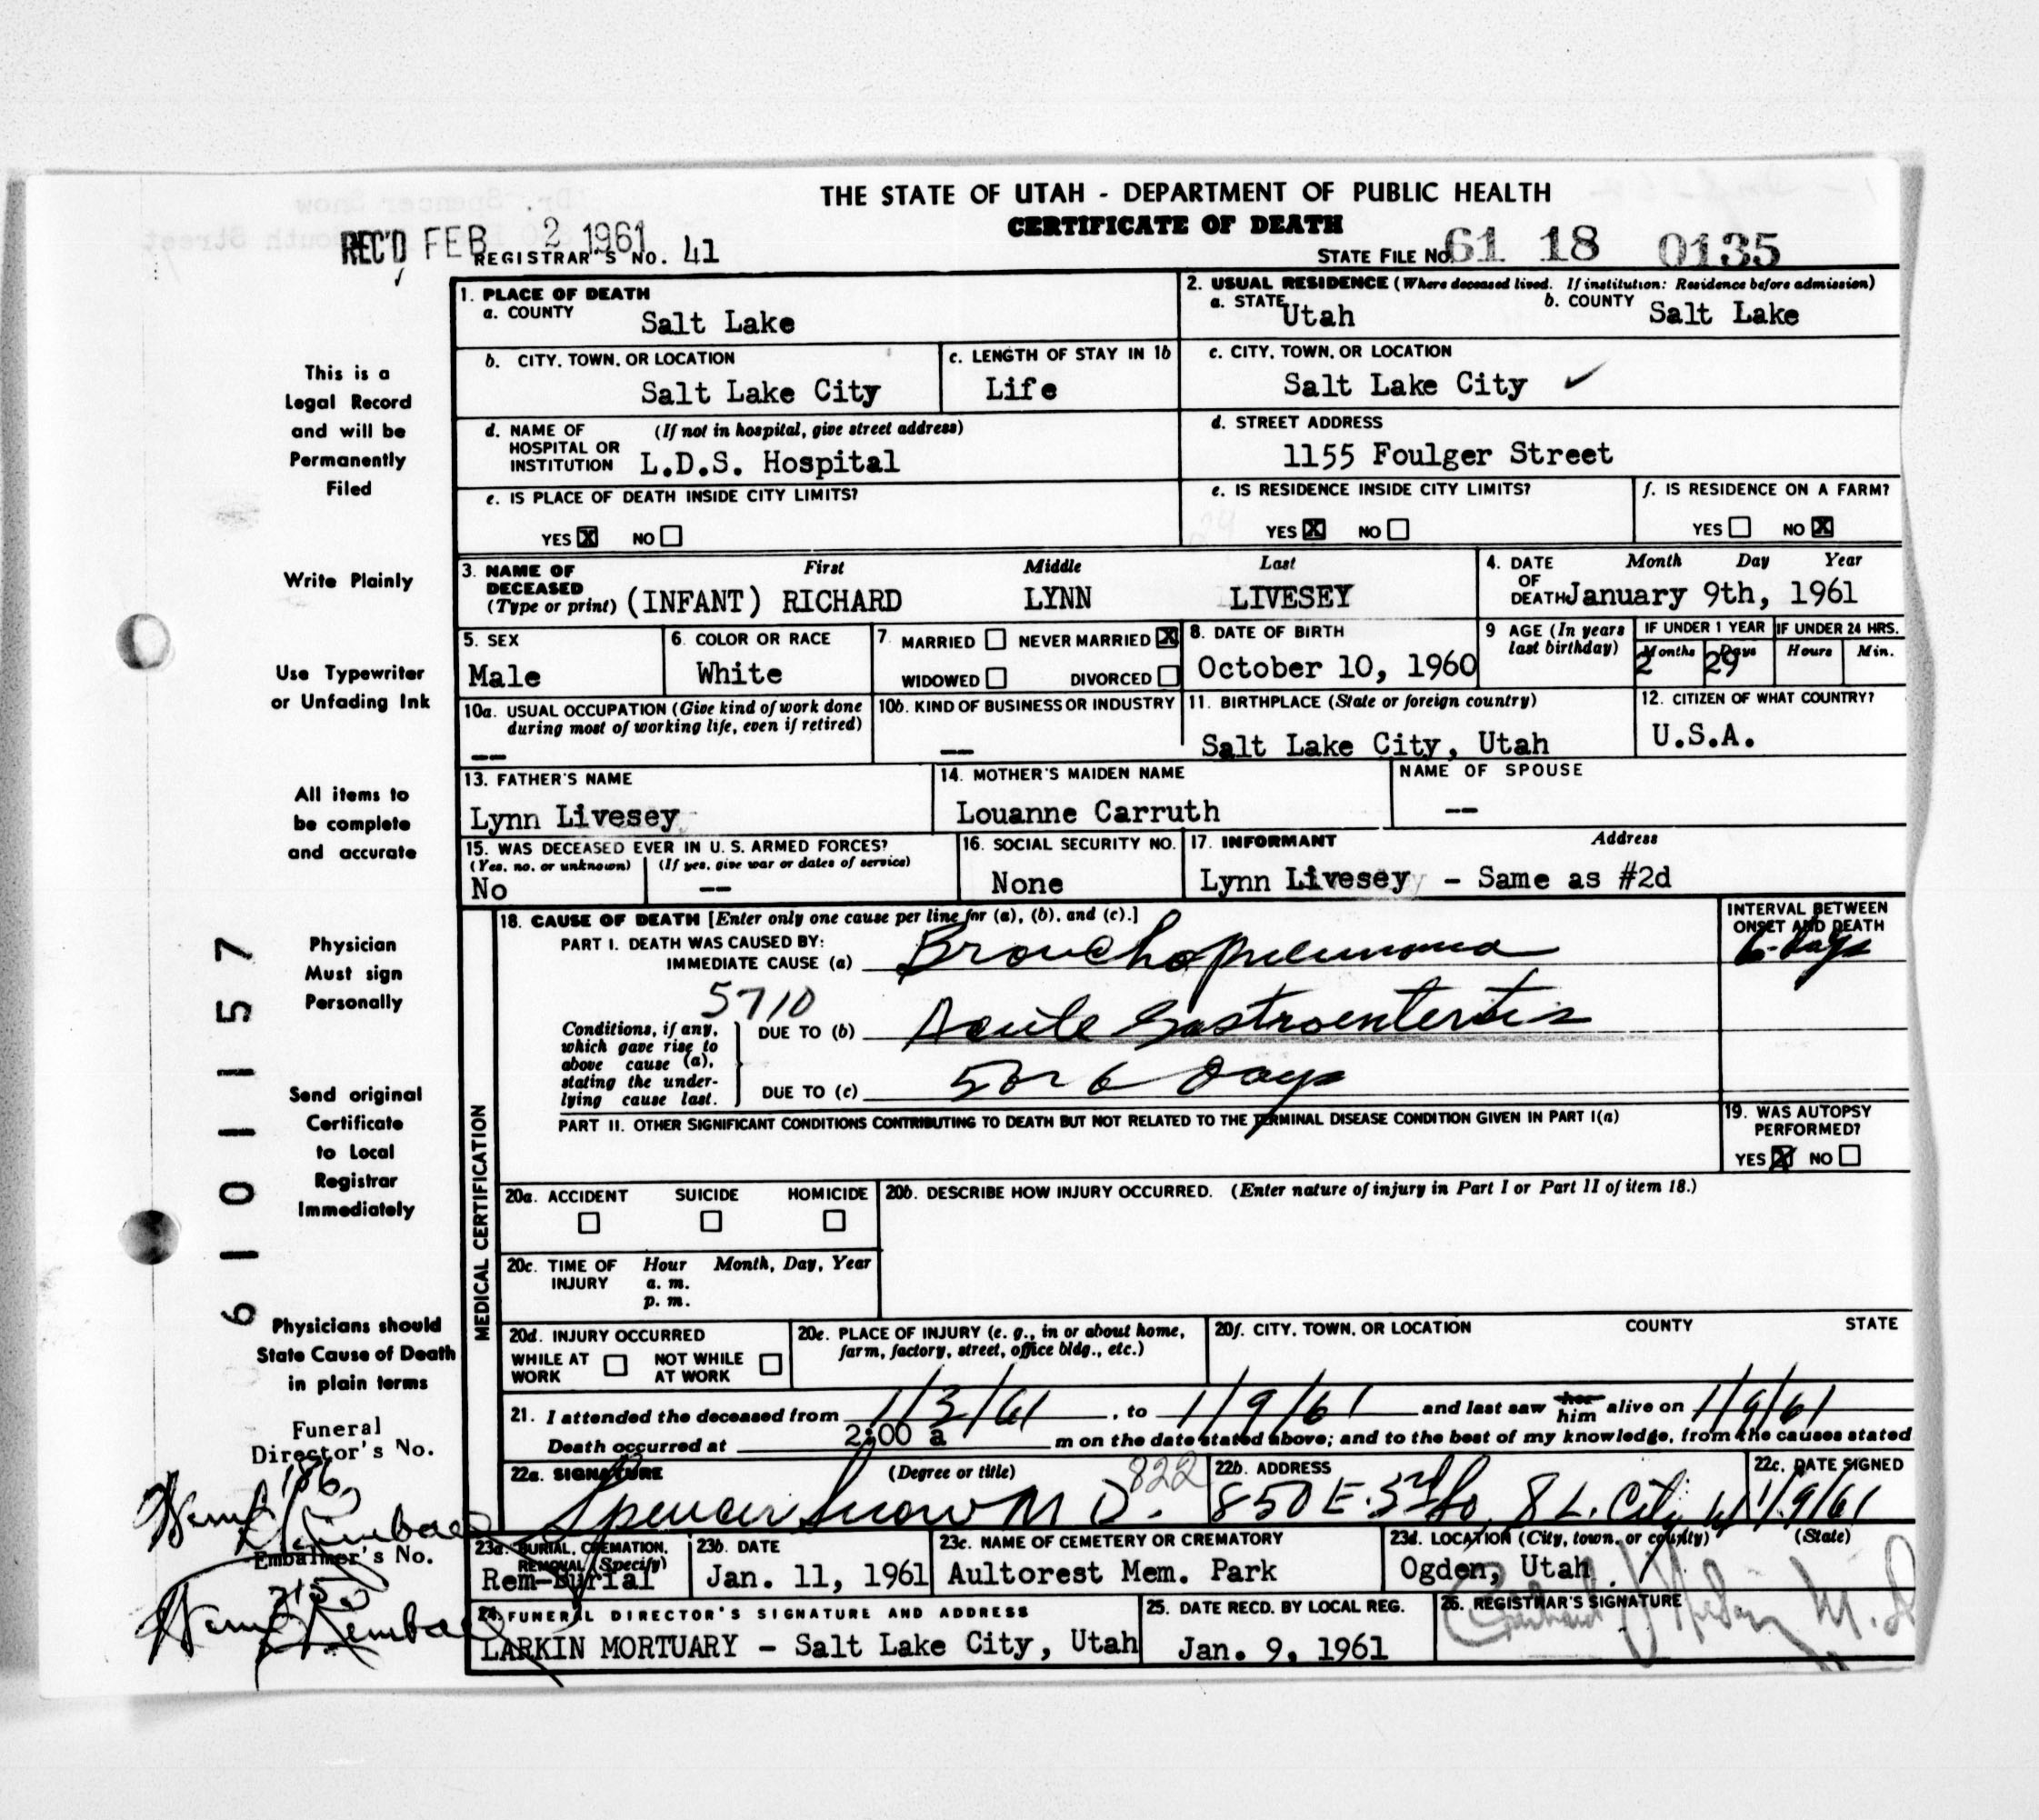 THE STATE OF UTAH - DEPARTMENT OF PUBLIC HEALTH
CERTIFICATE OF DEATH
REC'D FEB 2 1961
REGISTRAR'S NO. 41
STATE FILE NO. 61 18 0135
1. PLACE OF DEATH
a. COUNTY
Salt Lake
2. USUAL RESIDENCE (Where deceased lived. If institution: Residence before admission)
a. STATE Utah
b. COUNTY Salt Lake
b. CITY, TOWN, OR LOCATION
Salt Lake City
c. LENGTH OF STAY IN 1b
Life
c. CITY, TOWN, OR LOCATION
Salt Lake City ✓
d. NAME OF HOSPITAL OR INSTITUTION (If not in hospital, give street address)
L.D.S. Hospital
d. STREET ADDRESS
1155 Foulger Street
e. IS PLACE OF DEATH INSIDE CITY LIMITS?
YES X NO
e. IS RESIDENCE INSIDE CITY LIMITS?
YES X NO
f. IS RESIDENCE ON A FARM?
YES NO X
3. NAME OF DECEASED (Type or print)
First Middle Last
(INFANT) RICHARD LYNN LIVESEY
4. DATE OF DEATH Month Day Year
January 9th, 1961
5. SEX
Male
6. COLOR OR RACE
White
7. MARRIED NEVER MARRIED X
WIDOWED DIVORCED
8. DATE OF BIRTH
October 10, 1960
9 AGE (In years last birthday)
IF UNDER 1 YEAR
Months Days
2 29
IF UNDER 24 HRS.
Hours Min.
10a. USUAL OCCUPATION (Give kind of work done during most of working life, even if retired)
--
10b. KIND OF BUSINESS OR INDUSTRY
--
11. BIRTHPLACE (State or foreign country)
Salt Lake City, Utah
12. CITIZEN OF WHAT COUNTRY?
U.S.A.
13. FATHER'S NAME
Lynn Livesey
14. MOTHER'S MAIDEN NAME
Louanne Carruth
NAME OF SPOUSE
--
15. WAS DECEASED EVER IN U. S. ARMED FORCES?
(Yes, no, or unknown) (If yes, give war or dates of service)
No --
16. SOCIAL SECURITY NO.
None
17. INFORMANT Address
Lynn Livesey - Same as #2d
MEDICAL CERTIFICATION
18. CAUSE OF DEATH [Enter only one cause per line for (a), (b), and (c).]
PART I. DEATH WAS CAUSED BY:
IMMEDIATE CAUSE (a) Bronchopneumonia
INTERVAL BETWEEN ONSET AND DEATH
6 days
5710
Conditions, if any, which gave rise to above cause (a), stating the underlying cause last.
DUE TO (b) Acute Gastroenteritis
DUE TO (c) 5 or 6 days
PART II. OTHER SIGNIFICANT CONDITIONS CONTRIBUTING TO DEATH BUT NOT RELATED TO THE TERMINAL DISEASE CONDITION GIVEN IN PART I(a)
19. WAS AUTOPSY PERFORMED?
YES X NO
20a. ACCIDENT SUICIDE HOMICIDE
20b. DESCRIBE HOW INJURY OCCURRED. (Enter nature of injury in Part I or Part II of item 18.)
20c. TIME OF INJURY Hour Month, Day, Year
a. m.
p. m.
20d. INJURY OCCURRED
WHILE AT WORK NOT WHILE AT WORK
20e. PLACE OF INJURY (e. g., in or about home, farm, factory, street, office bldg., etc.)
20f. CITY, TOWN, OR LOCATION COUNTY STATE
21. I attended the deceased from 1/3/61, to 1/9/61 and last saw her him alive on 1/9/61
Death occurred at 2:00 a m on the date stated above; and to the best of my knowledge, from the causes stated
22a. SIGNATURE (Degree or title)
Spencer Snow M D. 822
22b. ADDRESS
850 E. 3rd So. S L. City
22c. DATE SIGNED
1/9/61
23a. BURIAL, CREMATION, REMOVAL (Specify)
Rem-Burial
23b. DATE
Jan. 11, 1961
23c. NAME OF CEMETERY OR CREMATORY
Aultorest Mem. Park
23d. LOCATION (City, town, or county) (State)
Ogden, Utah
24. FUNERAL DIRECTOR'S SIGNATURE AND ADDRESS
LARKIN MORTUARY - Salt Lake City, Utah
25. DATE RECD. BY LOCAL REG.
Jan. 9, 1961
26. REGISTRAR'S SIGNATURE
M. D
This is a
Legal Record
and will be
Permanently
Filed
Write Plainly
Use Typewriter
or Unfading Ink
All items to
be complete
and accurate
Physician
Must sign
Personally
Send original
Certificate
to Local
Registrar
Immediately
Physicians should
State Cause of Death
in plain terms
Funeral
Director's No.
186
Embalmer's No.
6101157